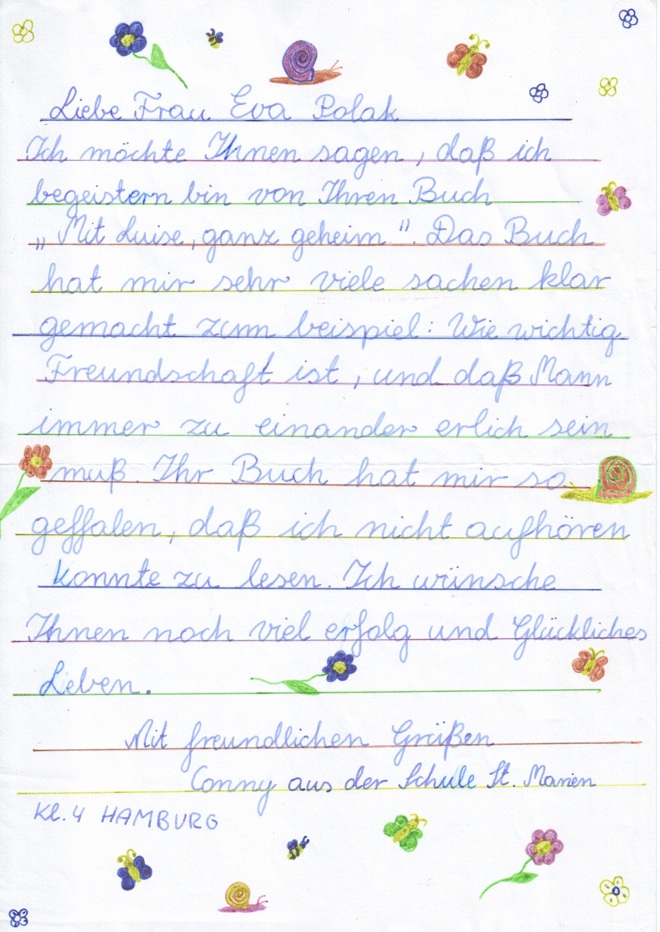 Liebe Frau Eva Polak
Ich möchte Ihnen sagen, daß ich
begeistern bin von Ihren Buch
„Mit Luise, ganz geheim". Das Buch
hat mir sehr viele sachen klar
gemacht zum beispiel: Wie wichtig
Freundschaft ist, und daß Mann
immer zu einander erlich sein
muß. Ihr Buch hat mir so
geffalen, daß ich nicht aufhören
konnte zu lesen. Ich wünsche
Ihnen noch viel erfolg und Glückliches
Leben.
Mit freundlichen Grüßen
Conny aus der Schule St. Marien
Kl. 4 HAMBURG